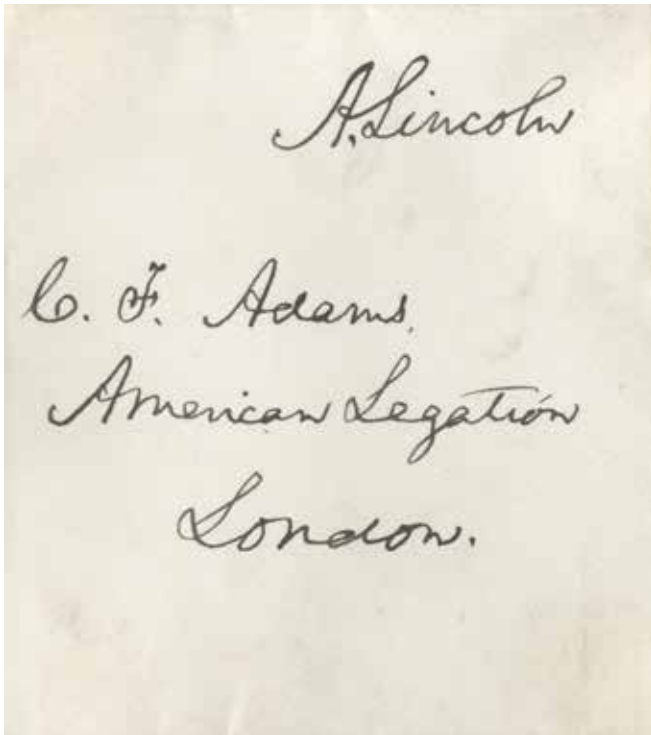 A. Lincoln
C. F. Adams.
American Legation
London.